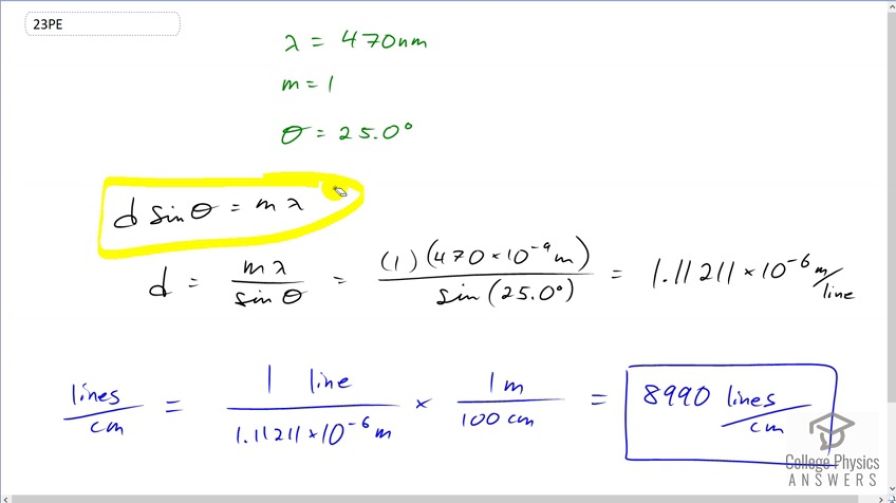 23PE
λ = 470nm
m = 1
θ = 25.0°
d sinθ = mλ
d = mλ / sinθ = (1)(470×10⁻⁹m) / sin(25.0°) = 1.11211×10⁻⁶ m/line
lines/cm = 1 line / 1.11211×10⁻⁶ m × 1m / 100 cm = 8990 lines/cm
College Physics
ANSWERS